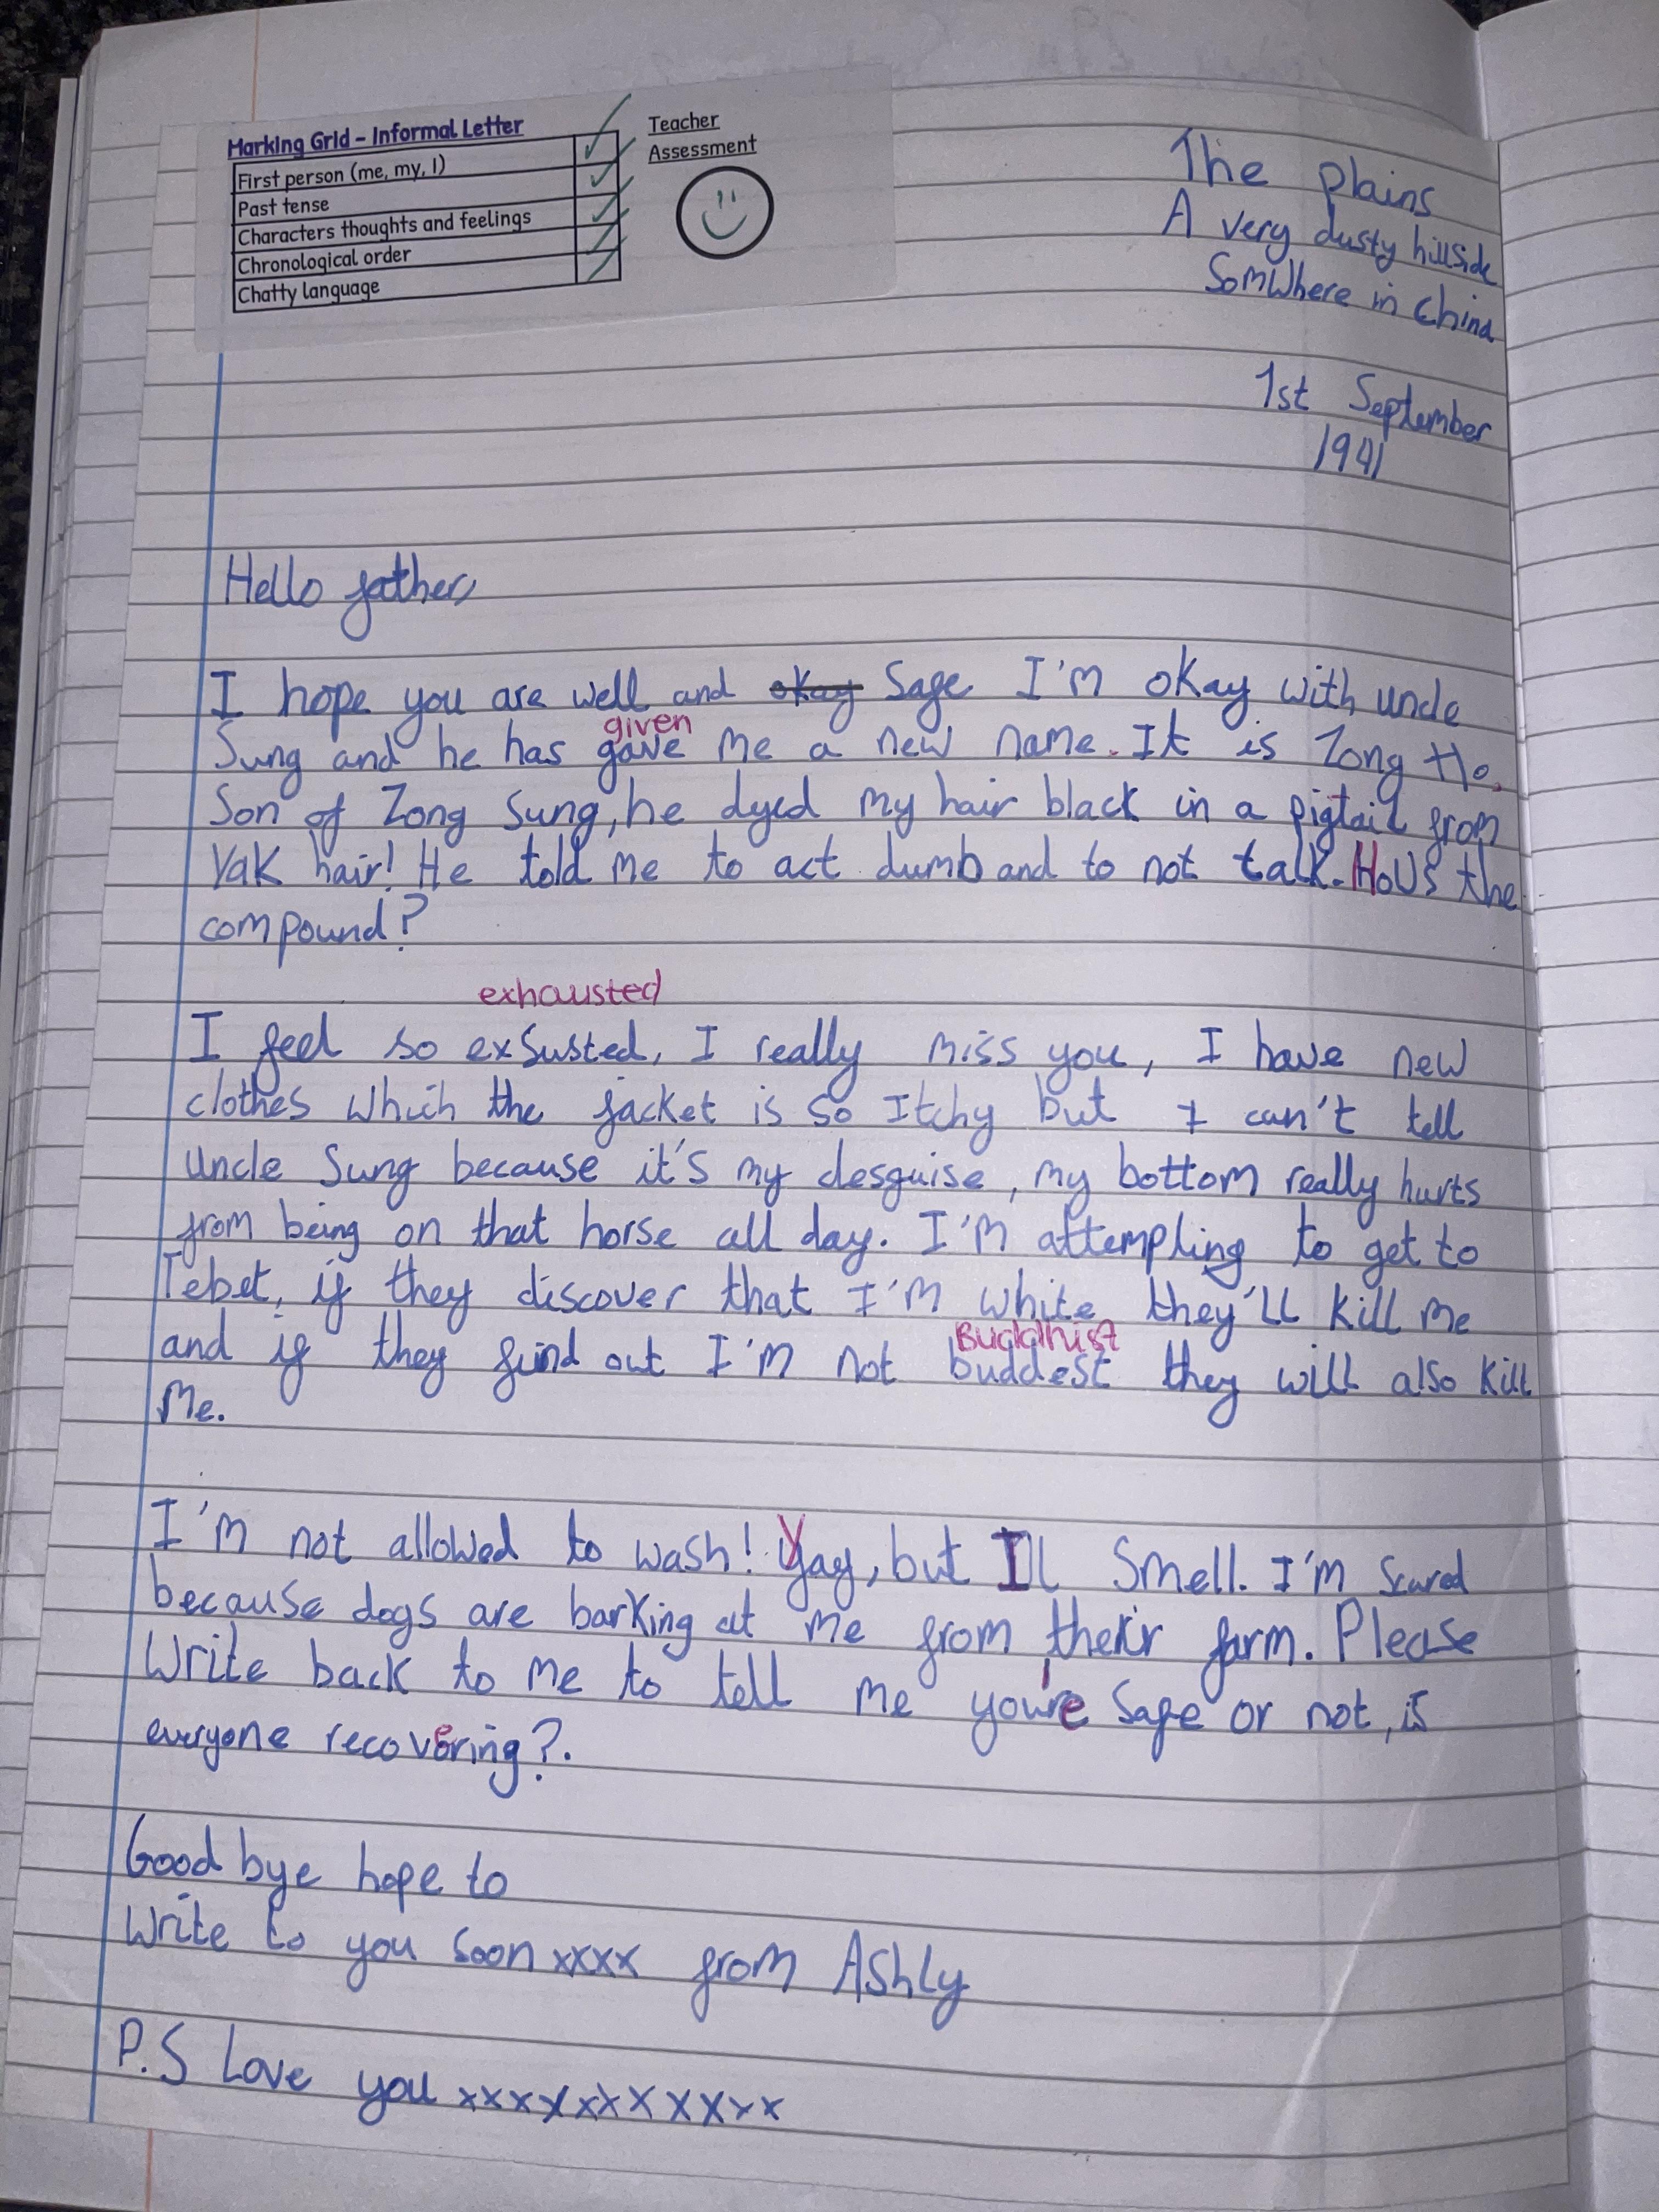 Marking Grid – Informal Letter
First person (me, my, I)
Past tense
Characters thoughts and feelings
Chronological order
Chatty language
Teacher
Assessment
The plains
A very dusty hillside
SomWhere in China
1st September
1941
Hello father,
I hope you are well and okay Safe I'm okay with uncle
given
Sung and he has gave me a new name. It is Zong Ho.
Son of Zong Sung, he dyed my hair black in a pigtail from
Yak hair! He told me to act dumb and to not talk. HoUs the
compound?
exhausted
I feel so exSusted, I really miss you, I have new
clothes which the jacket is so Itchy but I can't tell
Uncle Sung because it's my desguise, my bottom really hurts
from being on that horse all day. I'm attempting to get to
Tebet, if they discover that I'm white they'll kill me
Buddhist
and if they find out I'm not buddest they will also kill
Me.
I'm not allowed to wash! Yay, but Il Smell. I'm scared
because dogs are barking at me from their farm. Please
Write back to me to tell me you're Safe or not, is
everyone recovering?.
Good bye hope to
Write to you soon xxxx from Ashly
P.S Love you xxxxxxxxxxxx